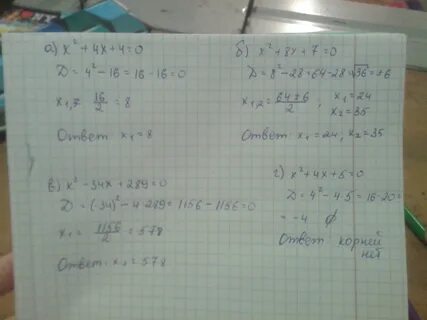 а) x² + 4x + 4 = 0
D = 4² - 16 = 16 - 16 = 0
x₁,₂ 16/2 = 8
Ответ: x₁ = 8
б) x² + 8x + 7 = 0
D = 8² - 28 = 64 - 28 = √36 = ±6
x₁,₂ = 64±6/2, x₁ = 24
x₂ = 35
Ответ: x₁ = 24, x₂ = 35
в) x² - 34x + 289 = 0
D = (-34)² - 4·289 = 1156 - 1156 = 0
x₁ = 1156/2 = 578
Ответ: x₁ = 578
г) x² + 4x + 5 = 0
D = 4² - 4·5 = 16-20 =
= -4 ∅
Ответ корней
нет